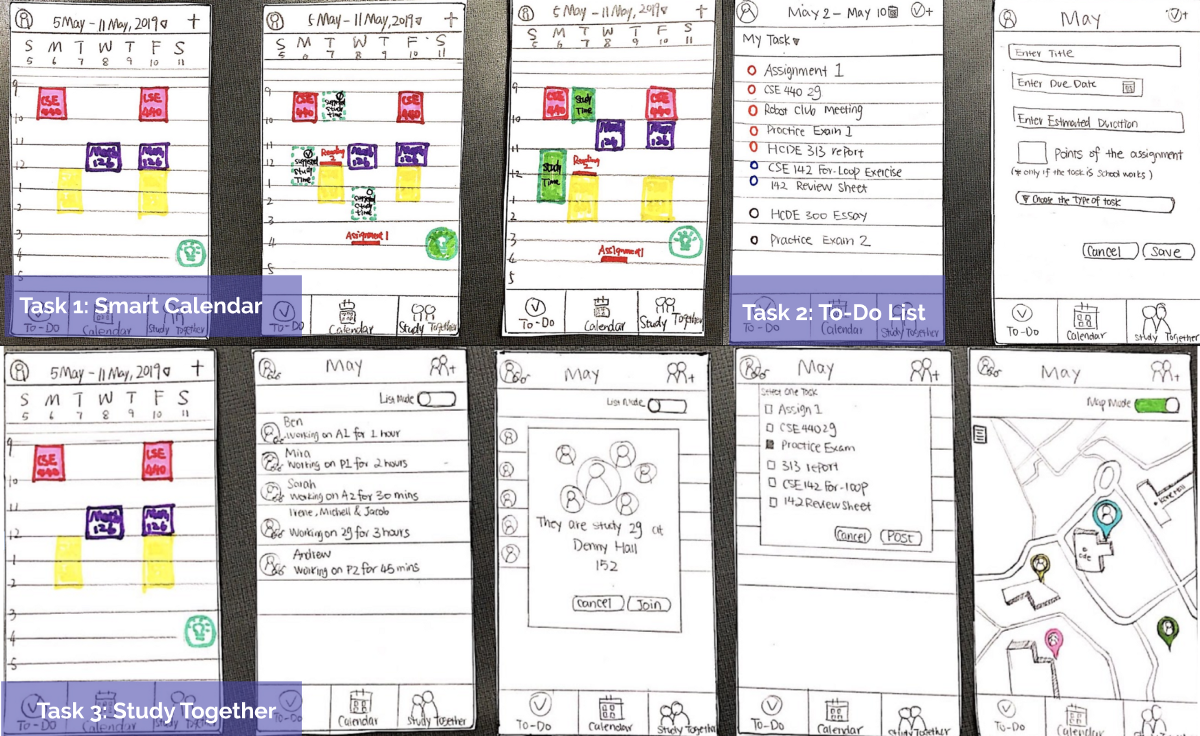 5 May - 11 May, 2019
+
S M T W T F S
5 6 7 8 9 10 11
9
CSE 440
CSE 440
10
11
Math 126
Math 126
12
1
2
3
4
5
Task 1: Smart Calendar
To-Do
Calendar
Study Together
5 May - 11 May, 2019
+
S M T W T F S
5 6 7 8 9 10 11
9
CSE 440
study time
CSE 440
10
11
study Time
Reading 2
Math 126
Math 126
12
1
study time
2
3
Assignment 1
4
5
To-Do
Calendar
Study Together
5 May - 11 May, 2019
+
S M T W T F S
5 6 7 8 9 10 11
9
CSE 440
Study Time
CSE 440
10
Math 126
Math 126
11
Study Time
Reading 2
12
1
2
3
Assignment 1
4
5
To-Do
Calendar
Study Together
May 2 - May 10
+
My Task
Assignment 1
CSE 440 2g
Robot Club Meeting
Practice Exam 1
HCDE 313 report
CSE 142 For-Loop Exercise
142 Review Sheet
HCDE 300 Essay
Practice Exam 2
Task 2: To-Do List
To-Do
Calendar
Study Together
May
+
Enter Title
Enter Due Date
Enter Estimated Duration
Points of the assignment
(* only if the task is school works)
Choose the Type of task
Cancel
Save
To-Do
Calendar
Study Together
5 May - 11 May, 2019
+
S M T W T F S
5 6 7 8 9 10 11
9
CSE 440
CSE 440
10
11
Math 126
Math 126
12
1
2
3
4
5
Task 3: Study Together
To-Do
Calendar
Study Together
May
+
List Mode
Ben
Working on A1 for 1 hour
Mira
Working on P1 for 2 hours
Sarah
Working on A2 for 30 mins
Irene, Michell & Jacob
Working on 2g for 3 hours
Andrew
Working on P2 for 45 mins
Calendar
Study Together
May
+
List Mode
They are study 2g at
Denny Hall
152
Cancel
Join
To-Do
Calendar
Study Together
May
+
Select One Task
Assign 1
CSE 440 2g
Practice Exam
313 report
CSE 142 For-loop
142 Review Sheet
Cancel
POST
To-Do
Calendar
Study Together
May
+
Map Mode
To-Do
Calendar
Study Together